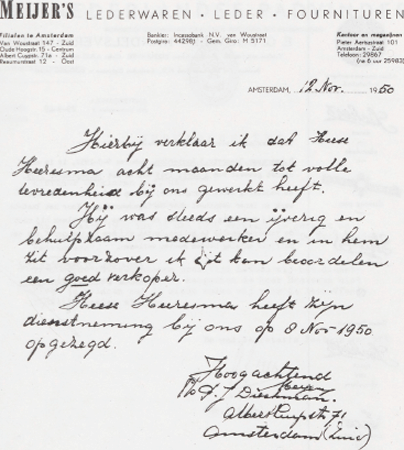 MEIJER'S LEDERWAREN • LEDER • FOURNITUREN
Filialen te Amsterdam
Van Woustraat 147 - Zuid
Oude Hoogstr. 15 - Centrum
Albert Cuypstr. 71a - Zuid
Beaumurstraat 12 - Oost
Bankier: Incassobank N.V. van Woustraat
Postgiro: 442983 - Gem. Giro: M 5171
Kantoor en magazijnen
Pieter Aertszstraat 101
Amsterdam - Zuid
Telefoon: 29867
(na 6 uur 25983)
AMSTERDAM, 12 Nov. 1950
Hierbij verklaar ik dat Heese
Heeresma acht maanden tot volle
tevredenheid bij ons gewerkt heeft.
Hij was steeds een ijverig en
behulpzaam medewerker en in hem
zit voorzover ik zijt kan beoordelen
een goed verkoper.
Heese Heeresma heeft zijn
dienstneming bij ons op 8 Nov 1950
opgezegd.
Hoogachtend
Meijer
Diesman.
Albert Cuypstr. 71
Amsterdam (Zuid)